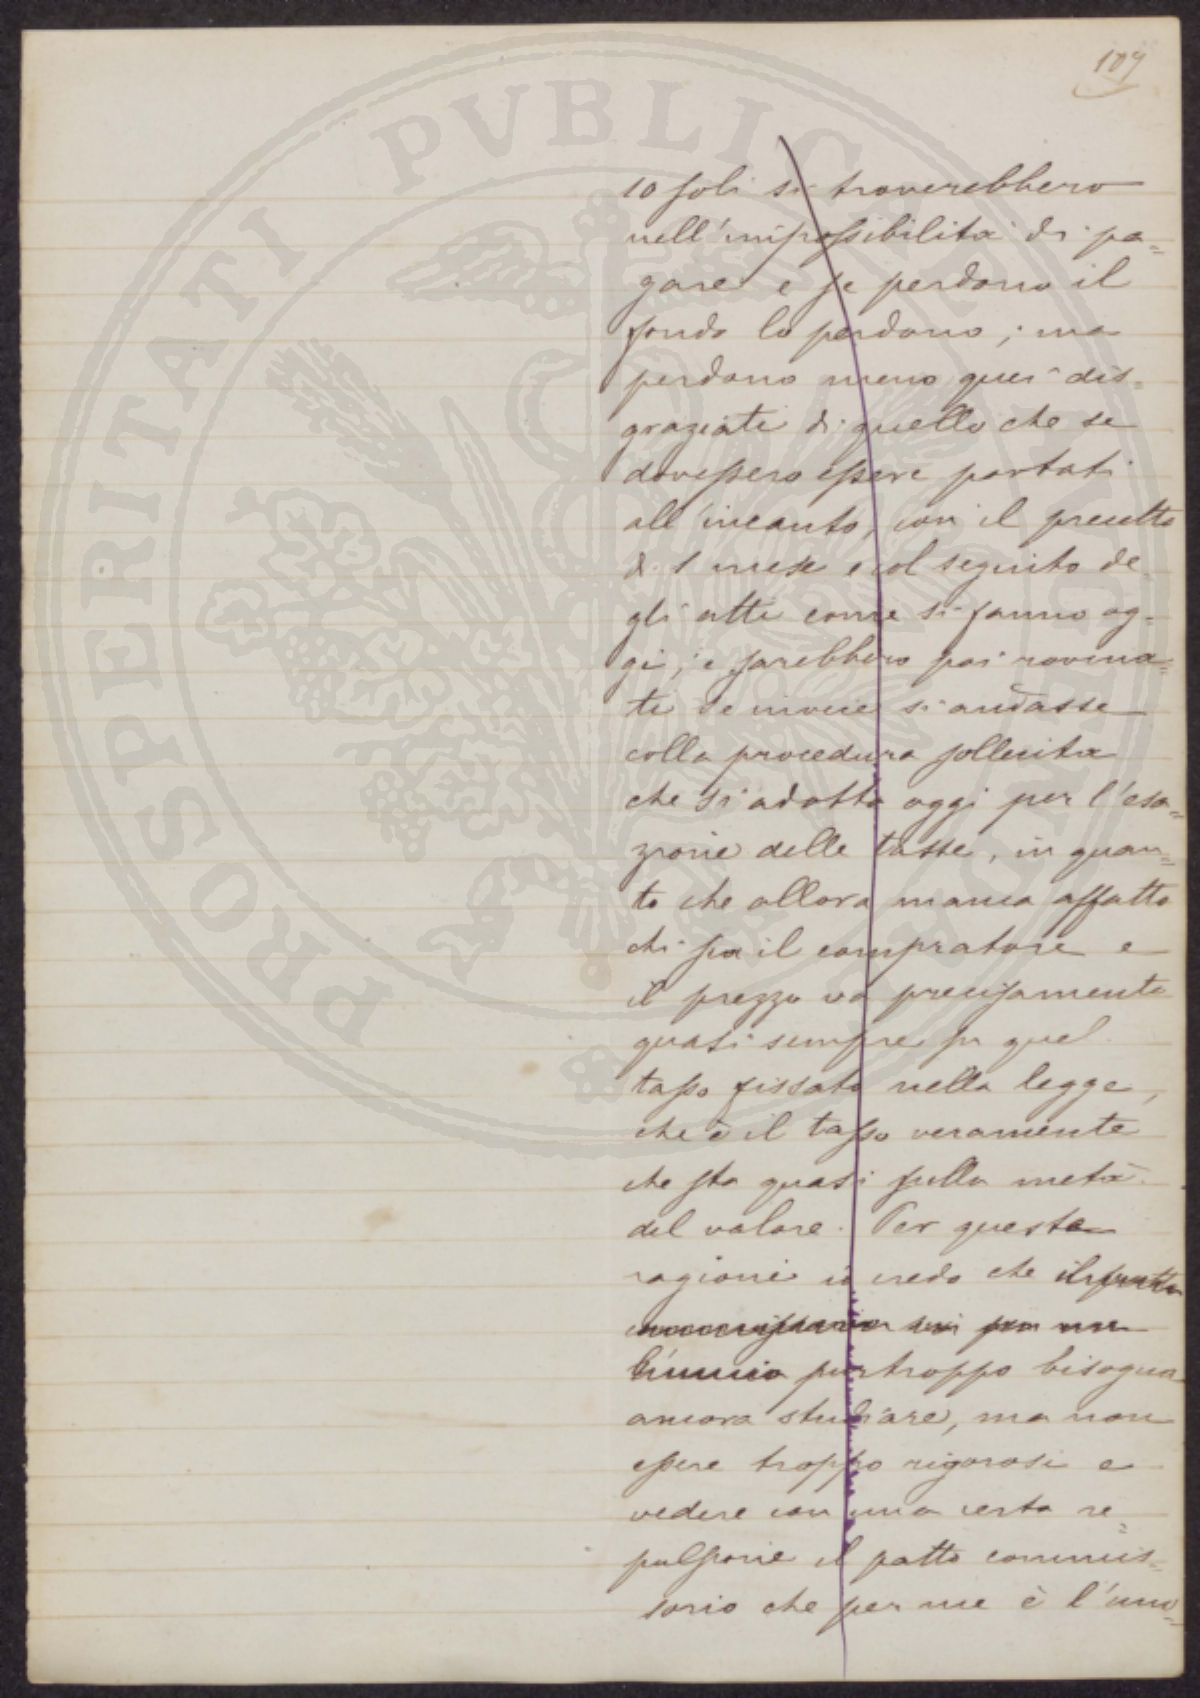 109
PROSPERITATI PVBLICAE AVGENDAE
10 soli si troverebbero
nell'impossibilità di pa=
gare e se perdono il
fondo lo perdono; ma
perdono meno quei dis=
graziati di quello che se
dovessero essere portati
all'incanto, con il precetto
di 1 mese e col seguito de=
gli atti come si fanno og=
gi; e sarebbero poi rovina=
ti se invece si andasse
colla procedura sollecita
che si adotta oggi per l'esa=
zione delle tasse, in quan=
to che allora manca affatto
chi fa il compratore e
il prezzo va precisamente
quasi sempre su quel
tasso fissato nella legge,
che è il tasso veramente
che sta quasi sulla metà
del valore. Per queste
ragioni io credo che il patto
purtroppo bisogna
ancora studiare, ma non
essere troppo rigorosi e
vedere con una certa re=
pulsione il patto commis=
sorio che per me è l'uni=